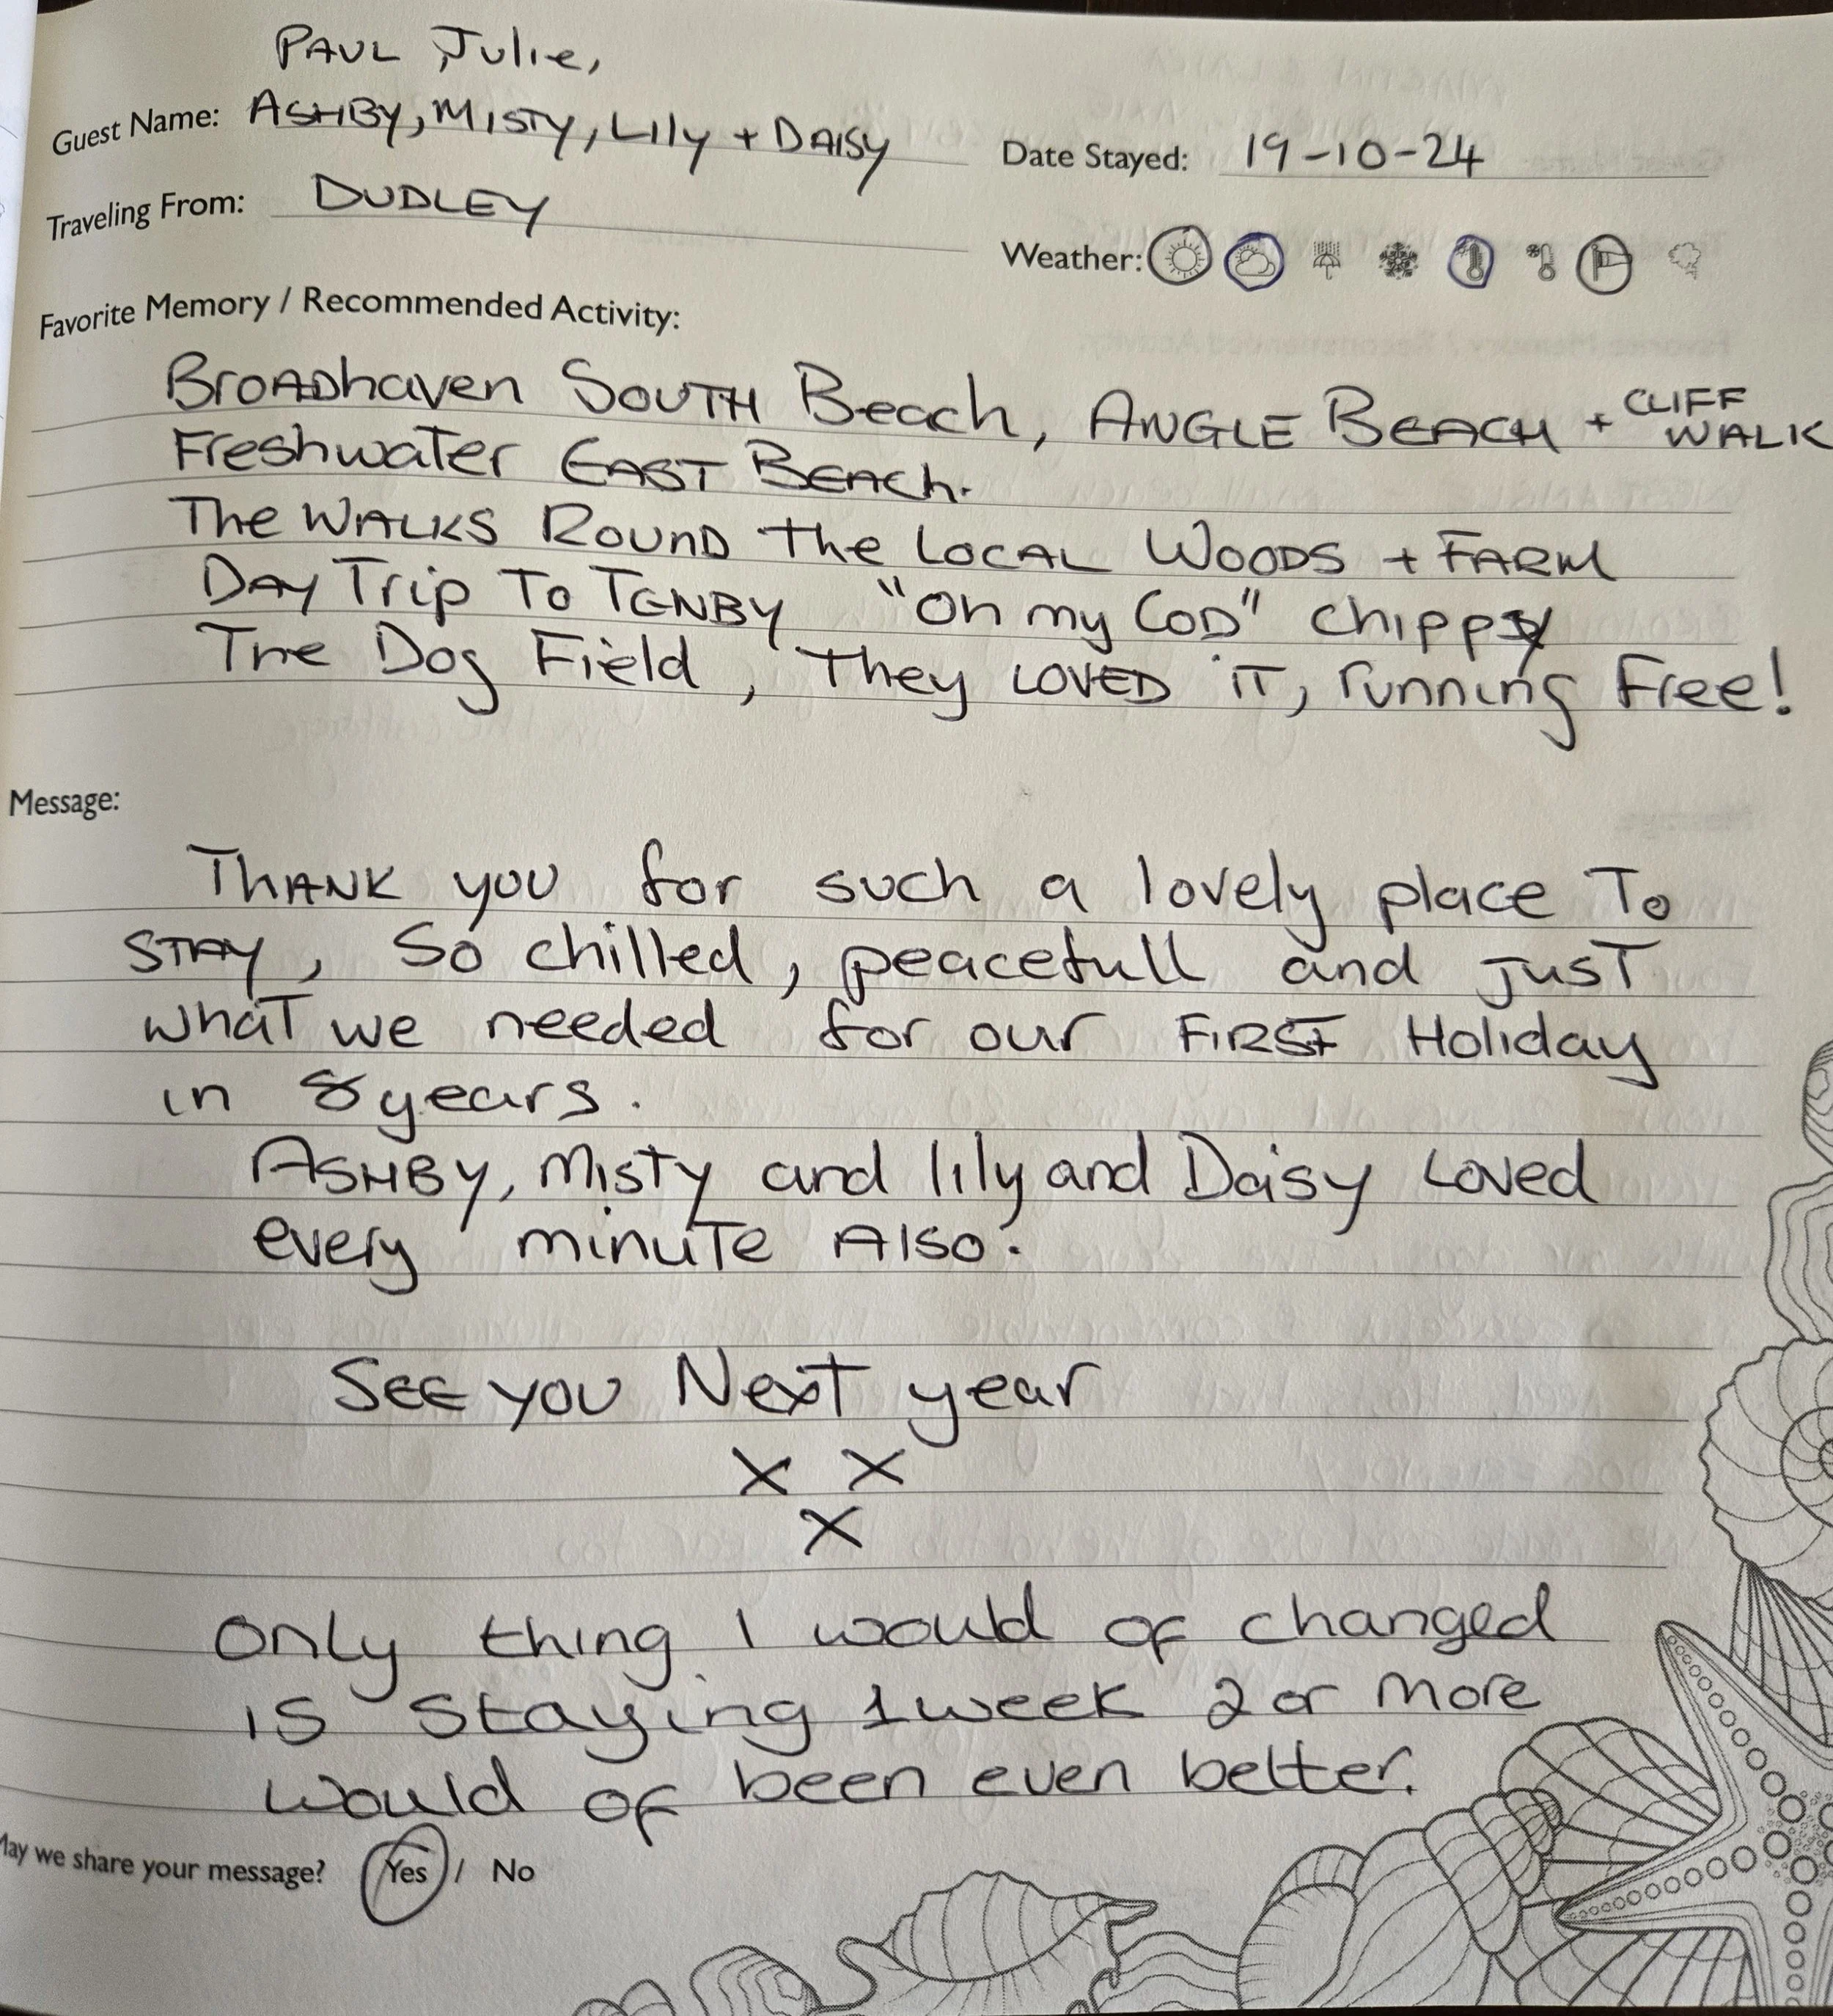 PAUL, Julie,
Guest Name: ASHBY, MISTY, Lily + DAISY
Date Stayed: 19-10-24
Traveling From: DUDLEY
Weather:
Favorite Memory / Recommended Activity:
BroADhaven SOUTH Beach, ANGLE BEACH + CLIFF WALK
Freshwater EAST BEACh.
The WALKS ROUND The LOCAL WOODS + FARM
DAY Trip To TENBY "Oh my COD" chippy
The Dog Field, They LOVED iT, running Free!
Message:
ThANK you for such a lovely place To
STAY, So chilled, peacefull and jusT
whaT we needed for our FIRST Holiday
in 8 years.
ASHBY, Misty and lily and Daisy Loved
every minuTe Also.
SEE you NexT year
x x
x
Only thing I would of changed
is staying 1 week 2 or more
would of been even better.
May we share your message? Yes / No